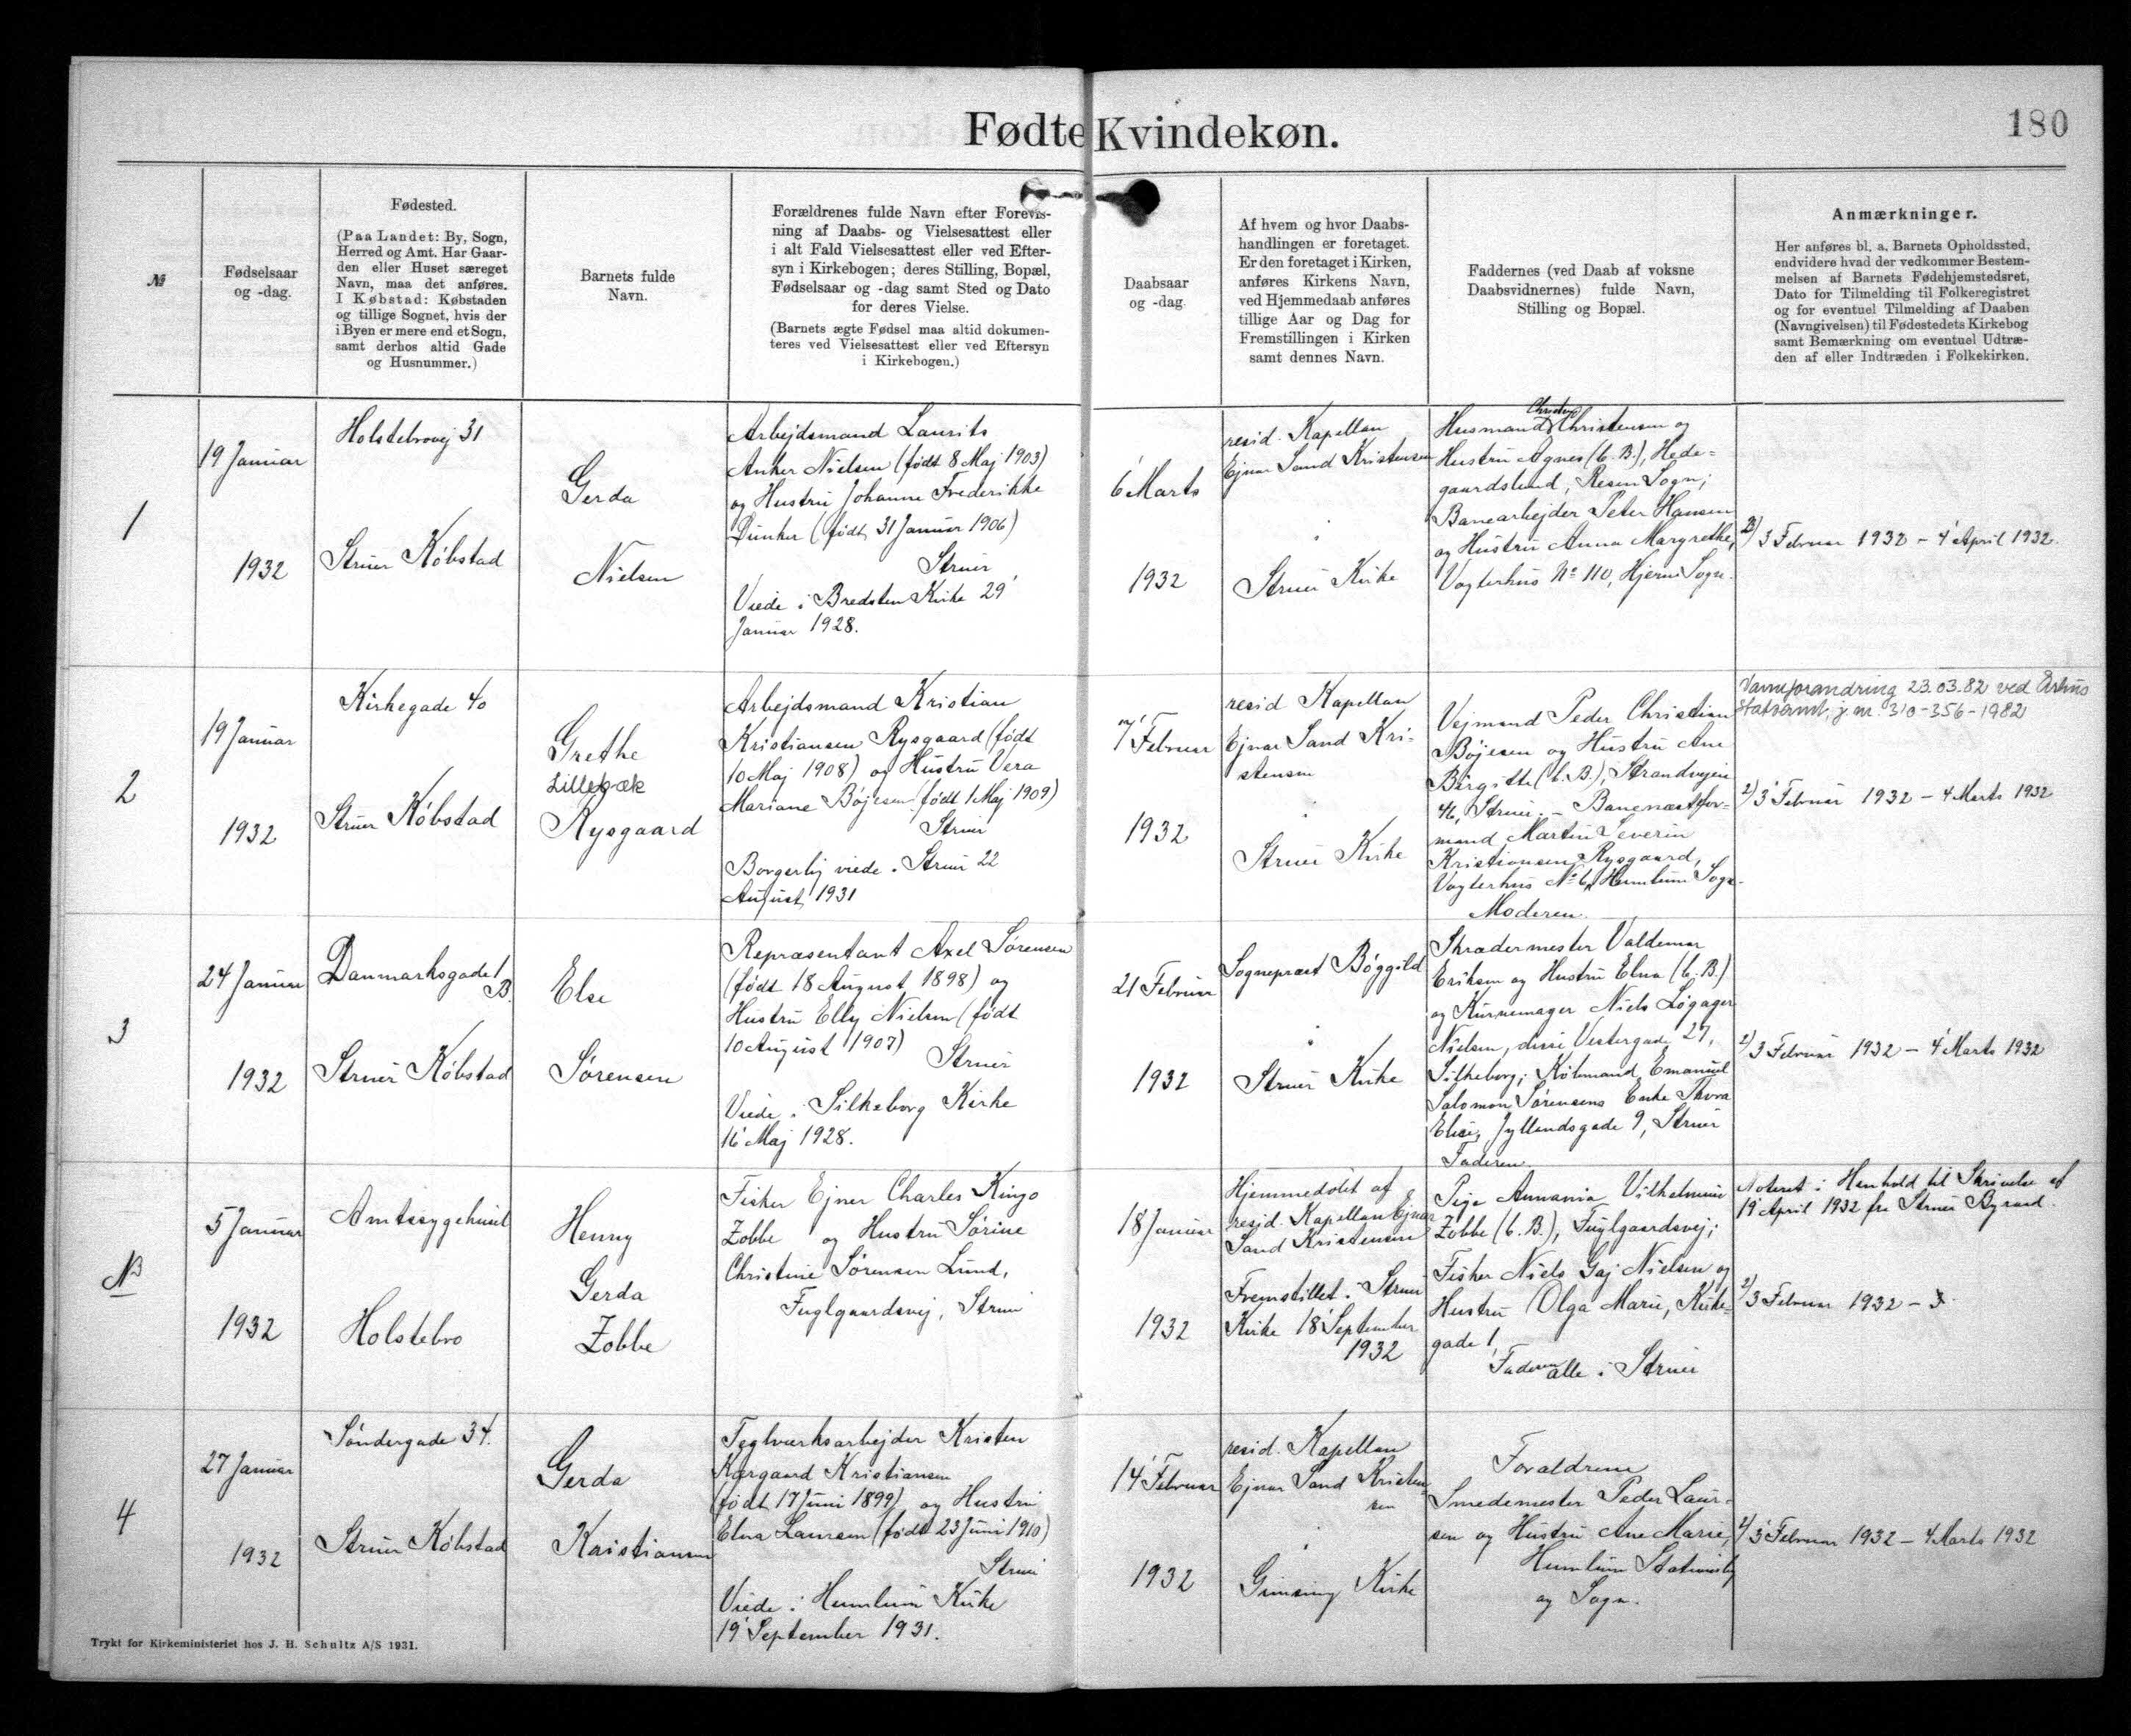 Fødte Kvindekøn.
180
№
Fødselsaar
og -dag.
Fødested.
(Paa Landet: By, Sogn,
Herred og Amt. Har Gaar-
den eller Huset særeget
Navn, maa det anføres.
I Købstad: Købstaden
og tillige Sognet, hvis der
i Byen er mere end et Sogn,
samt derhos altid Gade
og Husnummer.)
Barnets fulde
Navn.
Forældrenes fulde Navn efter Forevis-
ning af Daabs- og Vielsesattest eller
i alt Fald Vielsesattest eller ved Efter-
syn i Kirkebogen; deres Stilling, Bopæl,
Fødselsaar og -dag samt Sted og Dato
for deres Vielse.
(Barnets ægte Fødsel maa altid dokumen-
teres ved Vielsesattest eller ved Eftersyn
i Kirkebogen.)
Daabsaar
og -dag.
Af hvem og hvor Daabs-
handlingen er foretaget.
Er den foretaget i Kirken,
anføres Kirkens Navn,
ved Hjemmedaab anføres
tillige Aar og Dag for
Fremstillingen i Kirken
samt dennes Navn.
Faddernes (ved Daab af voksne
Daabsvidnernes) fulde Navn,
Stilling og Bopæl.
Anmærkninger.
Her anføres bl. a. Barnets Opholdssted,
endvidere hvad der vedkommer Bestem-
melsen af Barnets Fødehjemstedsret,
Dato for Tilmelding til Folkeregistret
og for eventuel Tilmelding af Daaben
(Navngivelsen) til Fødestedets Kirkebog
samt Bemærkning om eventuel Udtræ-
den af eller Indtræden i Folkekirken.
1
19 Januar
1932
Holstebrovej 31
Struer Købstad
Gerda
Nielsen
Arbejdsmand Laurits
Anker Nielsen (født 8 Maj 1903)
og Hustru Johanne Frederikke
Dunker (født 31 Januar 1906)
Struer
Viede i Bredsten Kirke 29
Januar 1928.
6 Marts
1932
resid. Kapellan
Ejnar Sand Kristensen
Struer Kirke
Husmand Christen Christensen og
Hustru Agnes (b. B.), Hede-
gaardslund, Resen Sogn;
Banearbejder Peter Hansen
og Hustru Anna Margrethe,
Vogterhus No 110, Hjerm Sogn.
2) 3 Februar 1932 – 4 April 1932.
2
19 Januar
1932
Kirkegade 40
Struer Købstad
Grethe
Lillebæk
Rysgaard
Arbejdsmand Kristian
Kristiansen Rysgaard (født
10 Maj 1908) og Hustru Vera
Mariane Bøjesen (født 1 Maj 1909)
Struer
Borgerlig viede i Struer 22
August 1931
7 Februar
1932
resid Kapellan
Ejnar Sand Kri-
stensen
Struer Kirke
Vejmand Peder Christian
Bøjesen og Hustru Ane
Birgitte (b. B.), Strandvejen
46, Struer. – Banenæstfor-
mand Martin Severin
Kristiansen Rysgaard,
Vogterhus No 6, Humlum Sogn.
Moderen.
Navneforandring 23.03.82 ved Århus
Statsamt, j. nr. 310-356-1982
2) 3 Februar 1932 – 4 Marts 1932
3
24 Januar
1932
Danmarksgade 1
B.
Struer Købstad
Else
Sørensen
Repræsentant Axel Sørensen
(født 18 August 1898) og
Hustru Elly Nielsen (født
10 August 1907)
Struer
Viede i Silkeborg Kirke
16 Maj 1928.
21 Februar
1932
Sognepræst Bøggild
Struer Kirke
Skrædermester Valdemar
Eriksen og Hustru Elna (b. B.)
og Kurvemager Niels Løgager
Nielsen, disse Vestergade 27,
Silkeborg; Købmand Emanuel
Salomon Sørensens Enke Thora
Elise, Jyllandsgade 9, Struer
Faderen.
2) 3 Februar 1932 – 4 Marts 1932
NB
5 Januar
1932
Amtssygehuset
Holstebro
Henny
Gerda
Zobbe
Fisker Ejner Charles Kingo
Zobbe og Hustru Sørine
Christine Sørensen Lund,
Fuglgaardsvej, Struer
18 Januar
1932
Hjemmedøbt af
resid. Kapellan Ejnar
Sand Kristensen
Fremstillet i Struer
Kirke 18 September
1932
Pige Annania Vilhelmine
Zobbe (b. B.), Fuglgaardsvej;
Fisker Niels Gaj Nielsen og
Hustru Olga Marie, Kirke-
gade 1,
Faderen alle i Struer
Noteret i Henhold til Skrivelse af
19 April 1932 fra Struer Byraad.
2) 3 Februar 1932 – 3.
4
27 Januar
1932
Søndergade 34.
Struer Købstad
Gerda
Kristiansen
Teglværksarbejder Kristen
Kærgaard Kristiansen
(født 17 Juni 1899) og Hustru
Elna Laursen (født 23 Juni 1910)
Struer
Viede i Humlum Kirke
19 September 1931.
14 Februar
1932
resid. Kapellan
Ejnar Sand Kristen-
sen
Gimsing Kirke
Forældrene
Smedemester Peder Laur-
sen og Hustru Ane Marie,
Humlum Stationsby
og Sogn.
2) 3 Februar 1932 – 4 Marts 1932
Trykt for Kirkeministeriet hos J. H. Schultz A/S 1931.